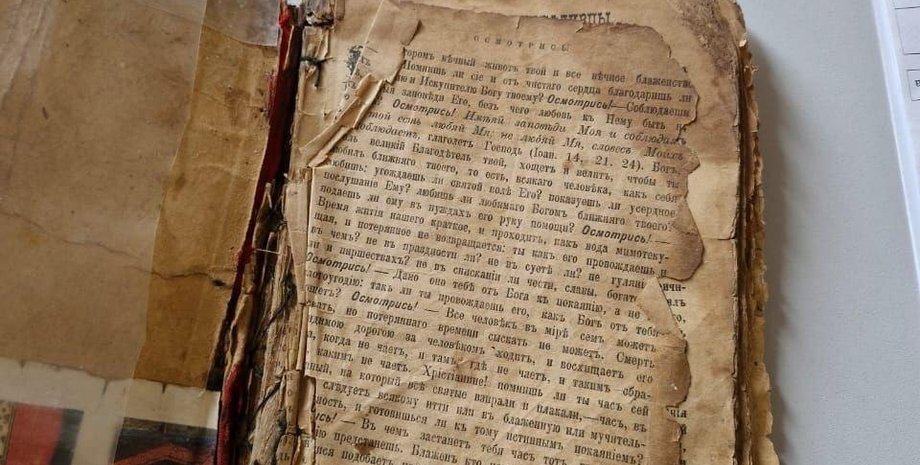 ОСМОТРИСЫ
торомъ вѣчный животъ твой и все вѣчное блаженств
Помнишь ли сіе и отъ чистаго сердца благодаришь ли
лю и Искупителю Богу твоему? Осмотрись!—Соблюдаеши
заповѣда Его, безъ чего любовь къ Нему быть н
Осмотрись! Имѣяй заповѣди Моя и соблюдаяй
той есть любяй Мя: не любяй Мя, словесъ Моихъ
соблюдаетъ, глаголетъ Господь (Іоан. 14, 21. 24). Богъ
великій Благодѣтель твой, хощетъ и велитъ, чтобы ты
любилъ ближняго твоего, то есть, всякаго человѣка, какъ себя
любишь: угождаеши ли святой волѣ Его? показуеши ли усердное
послушаніе Ему? любиши ли любимаго Богомъ ближняго твоего?
подаешь ли ему въ нуждахъ его руку помощи? Осмотрись! —
Время житія нашего краткое, и проходитъ, какъ вода мимотеку-
щая, и потерянное не возвращается: ты какъ его провождаешь и
въ чемъ? не въ праздности ли? не въ суетѣ ли? не гулянь
и пиршествахъ? не въ снисканіи ли чести, славы, богат
Осмотрись! — Дано оно тебѣ отъ Бога къ покаянію, а не
лотоугодію: такъ ли ты провождаешь его, какъ Богъ отъ тебя
Осмотрись! — Все человѣкъ въ мірѣ семъ можетъ
но потеряннаго времени сыскать не можетъ. Смерть
видимою дорогою за человѣкомъ ходитъ, и восхищаетъ его
когда не чаетъ, и тамъ, гдѣ не чаетъ, и такимъ обра-
какимъ не чаетъ. Христіанине! помнишь ли ты часъ сей
ный, на который всѣ святые взирали и плакали,—часъ, въ
слѣдуетъ всякому итти или въ блаженную или мучитель-
ность, и готовишься ли къ тому истиннымъ покаяніемъ?
— Въ чемъ застанетъ тебя часъ тотъ
предстанешь. Блаженъ
подобаетъ